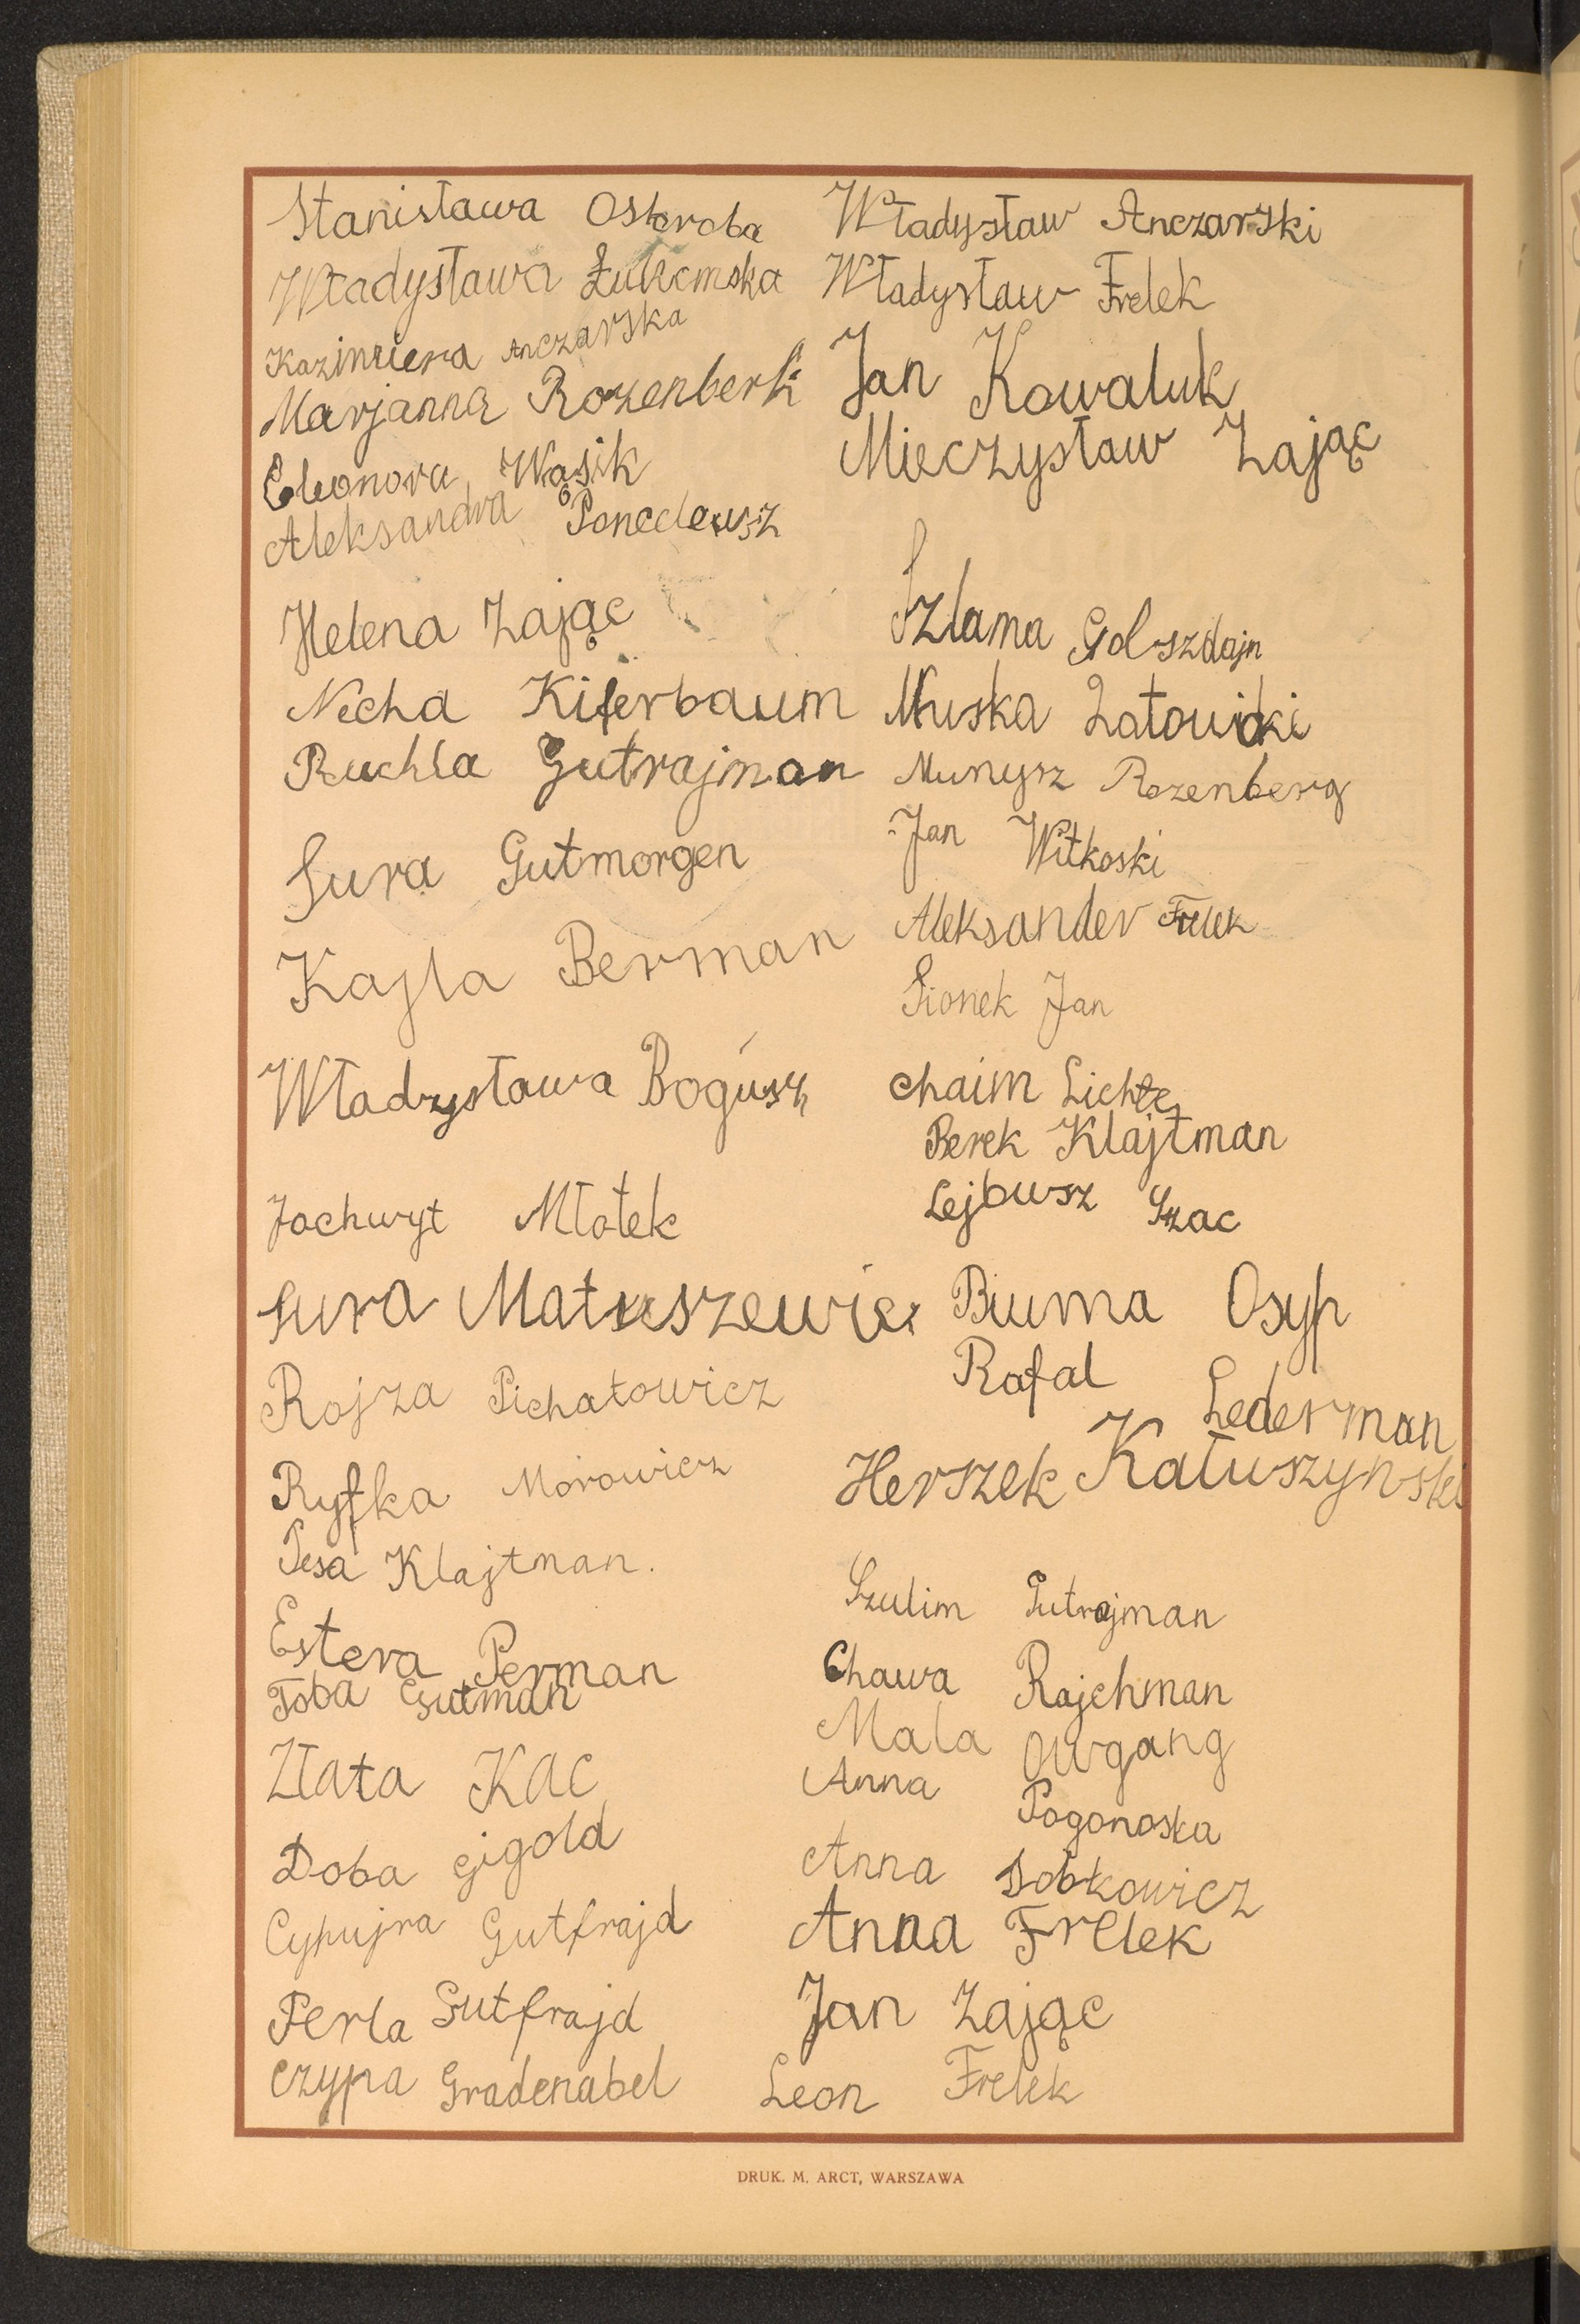 Stanisława Oskroba
Władysława Łukomska
Kazimiera Anczarska
Marjanna Rozenberk
Eleonora Wąsik
Aleksandra
Helena Zając
Necha Kiferbaum
Ruchla Gutrajman
Sura Gutmorgen
Kajla Berman
Władzysława Bogusz
Jochwyt Młotek
Sura Matuszewicz
Rojza Pichatowicz
Ryfka Morowicz
Pesa Klajtman.
Estera Perman
Toba Gutman
Złata Kac
Doba Gigold
Cypujra Gutfrajd
Perla Gutfrajd
Czypa Gradenabel
Władysław Anczarski
Władysław Frelek
Jan Kowaluk
Mieczysław Zając
Szlama Golszdajn
Muska Zatowicki
Munysz Rozenberg
Jan Witkoski
Aleksander Frelek
Sionek Jan
Chaim Lichte
Berek Klajtman
Lejbusz Szac
Biuma Osyp
Rafal Lederman
Herszek Kałuszynski
Szulim Gutrajman
Chawa Rajchman
Mala Owgang
Anna Pogonoska
Anna Sobkowicz
Anna Frelek
Jan Zając
Leon Frelek
DRUK. M. ARCT, WARSZAWA